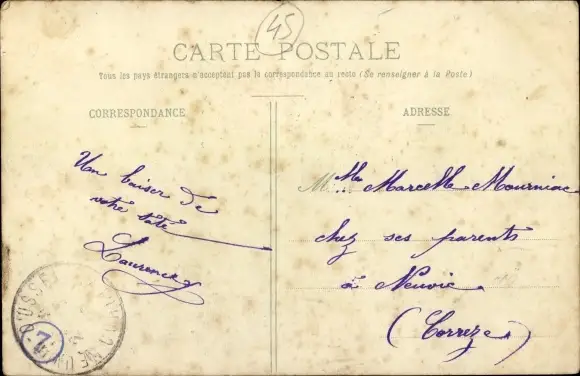 45
CARTE POSTALE
Tous les pays étrangers n'acceptent pas la correspondance au recto (Se renseigner à la Poste)
CORRESPONDANCE
ADRESSE
Un baiser de
votre
Laurence
M
Marcelle Mourniac
chez ses parents
à Neuvic
(Corrèze)
D'USSEL
7